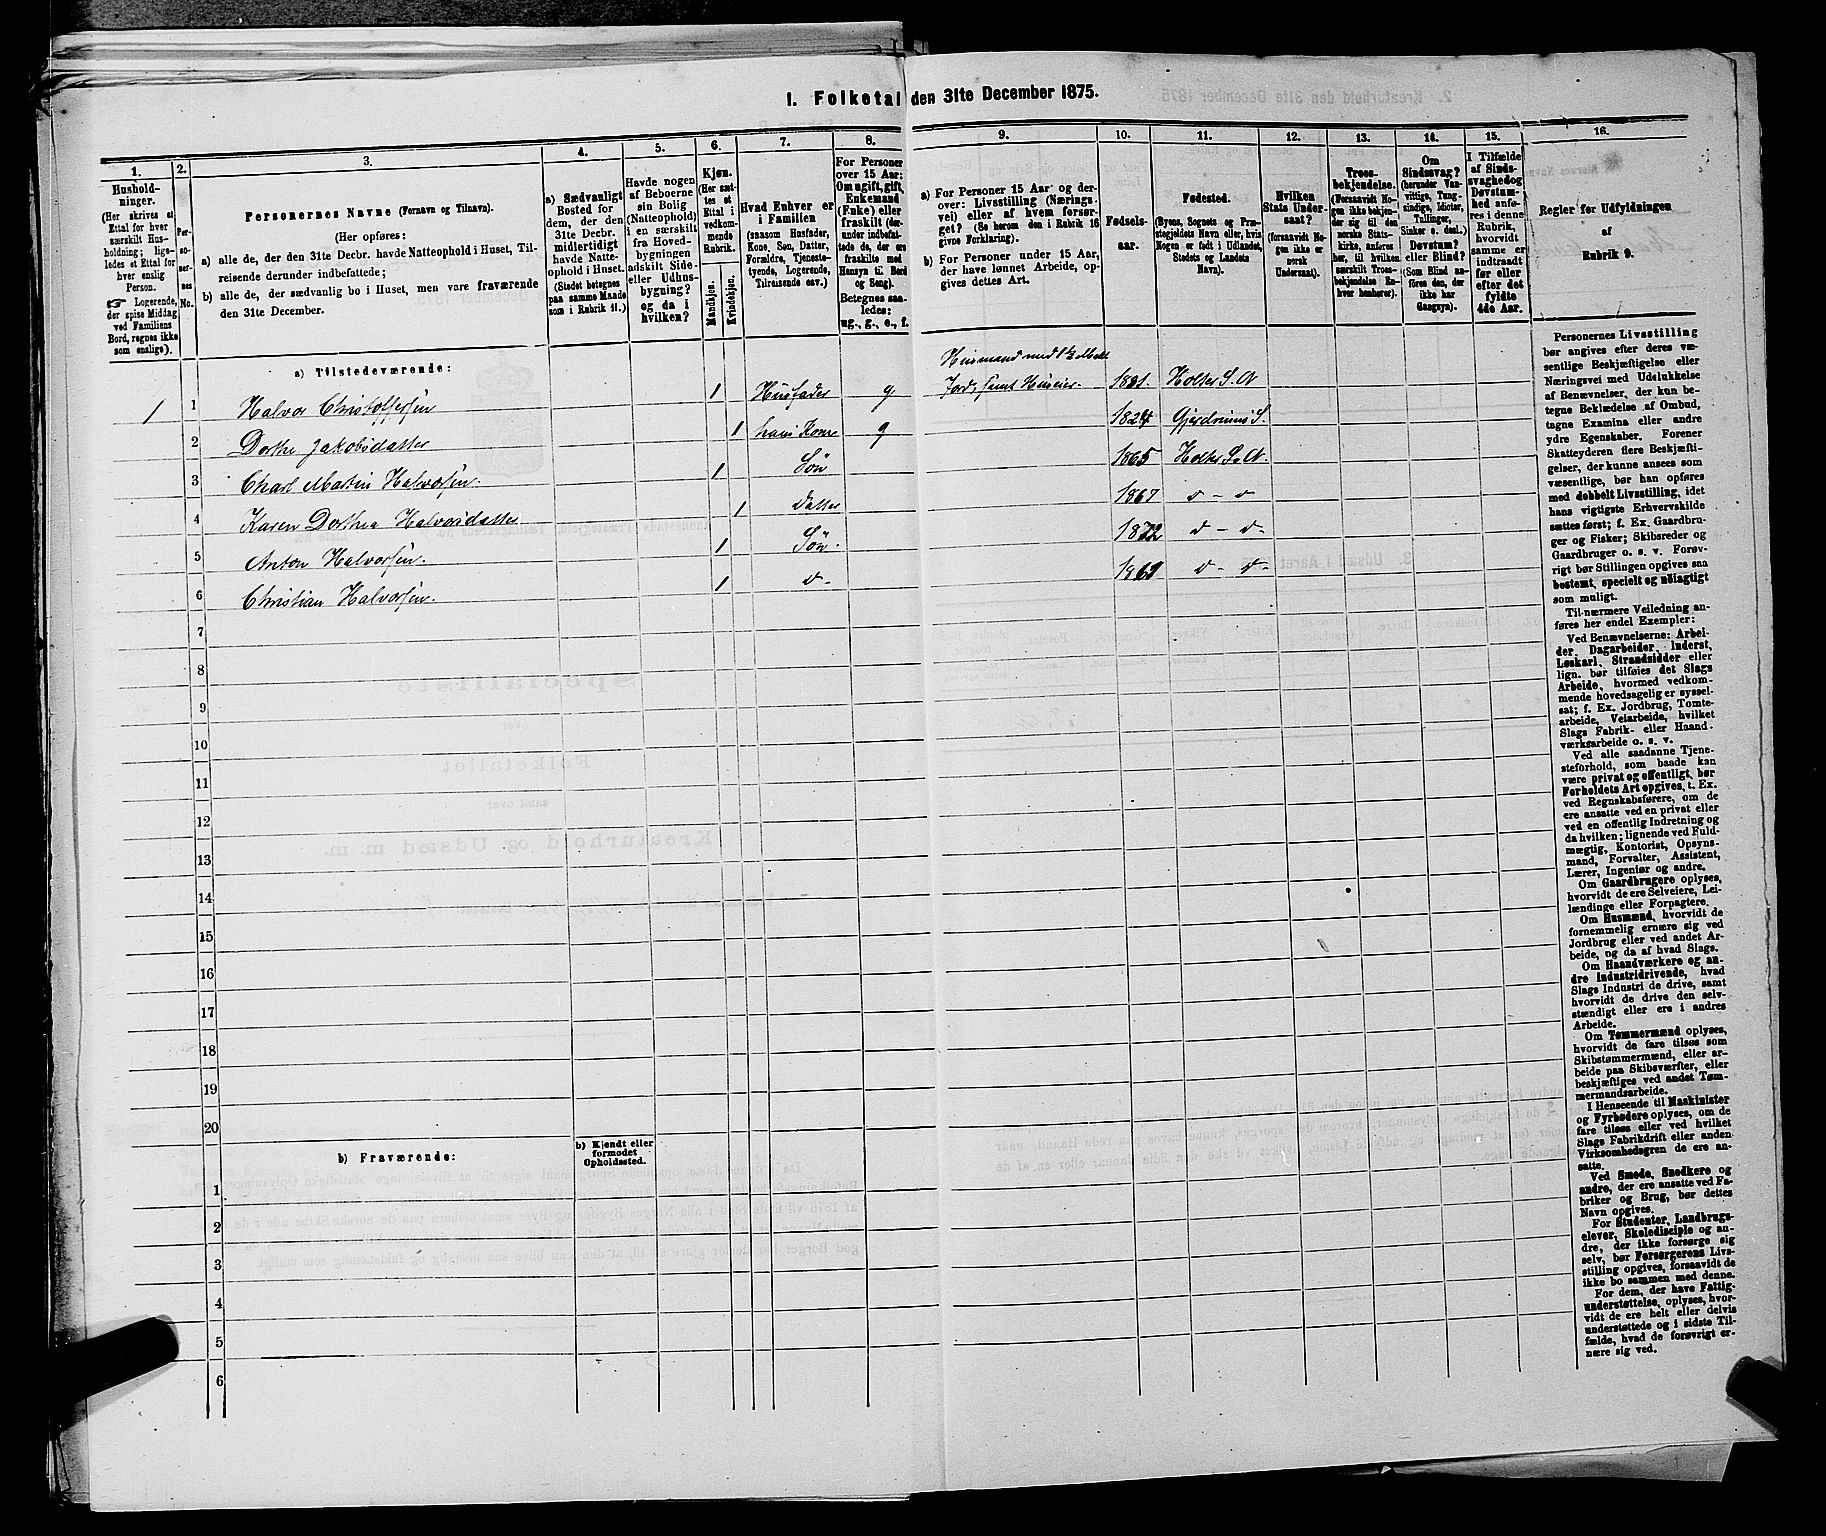 1. Folketal den 31te December 1875.
1.
Hushold-
ninger.
(Her skrives et
Ettal for hver
særskilt Hus-
holdning; lige-
ledes et Ettal for
hver enslig
Person.
☞ Logerende,
der spise Middag
ved Familiens
Bord, regnes ikke
som enslige).
2.
Per-
so-
ner-
nes
No.
3.
Personernes Navne (Fornavn og Tilnavn).
(Her opføres:
a) alle de, der den 31te Decbr. havde Natteophold i Huset, Til-
reisende derunder indbefattede;
b) alle de, der sædvanlig bo i Huset, men vare fraværende
den 31te December.
4.
a) Sædvanligt
Bosted for
dem, der den
31te Decbr.
midlertidigt
havde Natte-
ophold i Huset.
(Stedet betegnes
paa samme Maade
som i Rubrik 11.)
5.
Havde nogen
af Beboerne
sin Bolig
(Natteophold)
i en særskilt
fra Hoved-
bygningen
adskilt Side-
eller Udhus-
bygning?
og da i
hvilken?
6.
Kjøn.
(Her sæt-
tes et
Ettal i
vedkom-
mende
Rubrik.
Mandkjøn.
Kvindekjøn.
7.
Hvad Enhver er
i Familien
(saasom Husfader,
Kone, Søn, Datter,
Forældre, Tjeneste-
tyende, Logerende,
Tilreisende osv.).
8.
For Personer
over 15 Aar:
Om ugift, gift,
Enkemand
(Enke) eller
fraskilt (der-
under indbefat-
tede de, der ere
fraskilte med
Hensyn til Bord
og Seng).
Betegnes saa-
ledes:
ug., g., e., f.
9.
a) For Personer 15 Aar og der-
over: Livsstilling (Nærings-
vei) eller af hvem forsør-
get? (Se herom den i Rubrik 16
givne Forklaring).
b) For Personer under 15 Aar,
der have lønnet Arbeide, op-
gives dettes Art.
10.
Fødsels-
aar.
11.
Fødested.
(Byens, Sognets og Præ-
stegjeldets Navn eller, hvis
Nogen er født i Udlandet,
Stedets og Landets
Navn).
12.
Hvilken
Stats Under-
saat?
(forsaavidt No-
gen ikke er
norsk
Undersaat).
13.
Troes-
bekjendelse.
(Forsaavidt No-
gen ikke bekjen-
der sig til den
norske Stats-
kirke, anføres
her, til hvilken
særskilt Troes-
bekjendelse En-
hver henhører).
14.
Om
Sindssvag?
(herunder Van-
vittige, Tung-
sindige, Idioter,
Tullinger,
Sinker o. desl.).
Døvstum?
eller Blind?
(Som Blind an-
føres den, der
ikke har
Gangsyn).
15.
I Tilfælde
af Sinds-
svaghed og
Døvstum-
hed anfø-
res i denne
Rubrik,
hvorvidt
samme er
indtraadt
før eller
efter det
fyldte
4de Aar.
16.
Regler for Udfyldningen
af
Rubrik 9.
a) Tilstedeværende:
1 1 Halvor Christoffersen 1 Husfader g Husmand med Jord, samt Huseier 1821. Holter S. A
2 Dorthe Jakobsdatter 1 hans Kone g 1824 Gjerdrums S.
3 Charl Martin Halvorsen. 1 Søn 1865 Holter S. A.
4 Karen Dorthea Halvorsdatter 1 Datter 1867 d - d
5 Anton Halvorsen. 1 Søn. 1872 d - d-
6 Christian Halvorsen. 1 d- 1869 d- d-
7
8
9
10
11
12
13
14
15
16
17
18
19
20
b) Fraværende:
b) Kjendt eller
formodet
Opholdssted.
1
2
3
4
5
6
Personernes Livsstilling
bør angives efter deres væ-
sentlige Beskjæftigelse eller
Næringsvei med Udelukkelse
af Benævnelser, der kun be-
tegne Beklædelse af Ombud,
tagne Examina eller andre
ydre Egenskaber. Forener
Skatteyderen flere Beskjæfti-
gelser, der kunne ansees som
væsentlige, bør han opføres
med dobbelt Livsstilling, idet
hans vigtigste Erhvervskilde
sættes først; f. Ex. Gaardbru-
ger og Fisker; Skibsreder og
Gaardbruger o. s. v. Forøv-
rigt bør Stillingen opgives saa
bestemt, specielt og nøiagtigt
som muligt.
Til nærmere Veiledning an-
føres her endel Exempler:
Ved Benævnelserne: Arbei-
der, Dagarbeider, Inderst,
Løskarl, Strandsidder eller
lign. bør tilføies det Slags
Arbeide, hvormed vedkom-
mende hovedsagelig er syssel-
sat; f. Ex. Jordbrug, Tomte-
arbeide, Veiarbeide, hvilket
Slags Fabrik- eller Haand-
værksarbeide o. s. v.
Ved alle saadanne Tjene-
steforhold, som baade kan
være privat og offentligt, bør
Forholdets Art opgives, t. Ex.
ved Regnskabsførere, om de
ere ansatte ved en privat eller
ved en offentlig Indretning og
da hvilken; lignende ved Fuld-
mægtig, Kontorist, Opsyns-
mand, Forvalter, Assistent,
Lærer, Ingeniør og andre.
Om Gaardbrugere oplyses,
hvorvidt de ere Selveiere, Lei-
lændinge eller Forpagtere.
Om Husmænd, hvorvidt de
fornemmelig ernære sig ved
Jordbrug eller ved andet Ar-
beide, og da af hvad Slags.
Om Haandværkere og an-
dre Industridrivende, hvad
Slags Industri de drive, samt
hvorvidt de drive den selv-
stændigt eller ere i andres
Arbeide.
Om Tømmermænd oplyses,
hvorvidt de fare tilsøs som
Skibstømmermænd, eller ar-
beide paa Skibsværfter, eller
beskjæftiges ved andet Tøm-
mermandsarbeide.
I Henseende til Maskinister
og Fyrbødere oplyses, om de
fare tilsøs eller ved hvilket
Slags Fabrikdrift eller anden
Virksomhedsgren de ere an-
satte.
Ved Smede, Snedkere og
andre, der ere ansatte ved Fa-
briker og Brug, bør dettes
Navn opgives.
For Studenter, Landbrugs-
elever, Skoledisciple og an-
dre, der ikke forsørge sig
selv, bør Forsørgerens Livs-
stilling opgives, forsaavidt de
ikke bo sammen med denne.
For dem, der have Fattig-
understøttelse, oplyses, hvor-
vidt de ere helt eller delvis
understøttede og i sidste Til-
fælde, hvad de forøvrigt er-
nære sig ved.